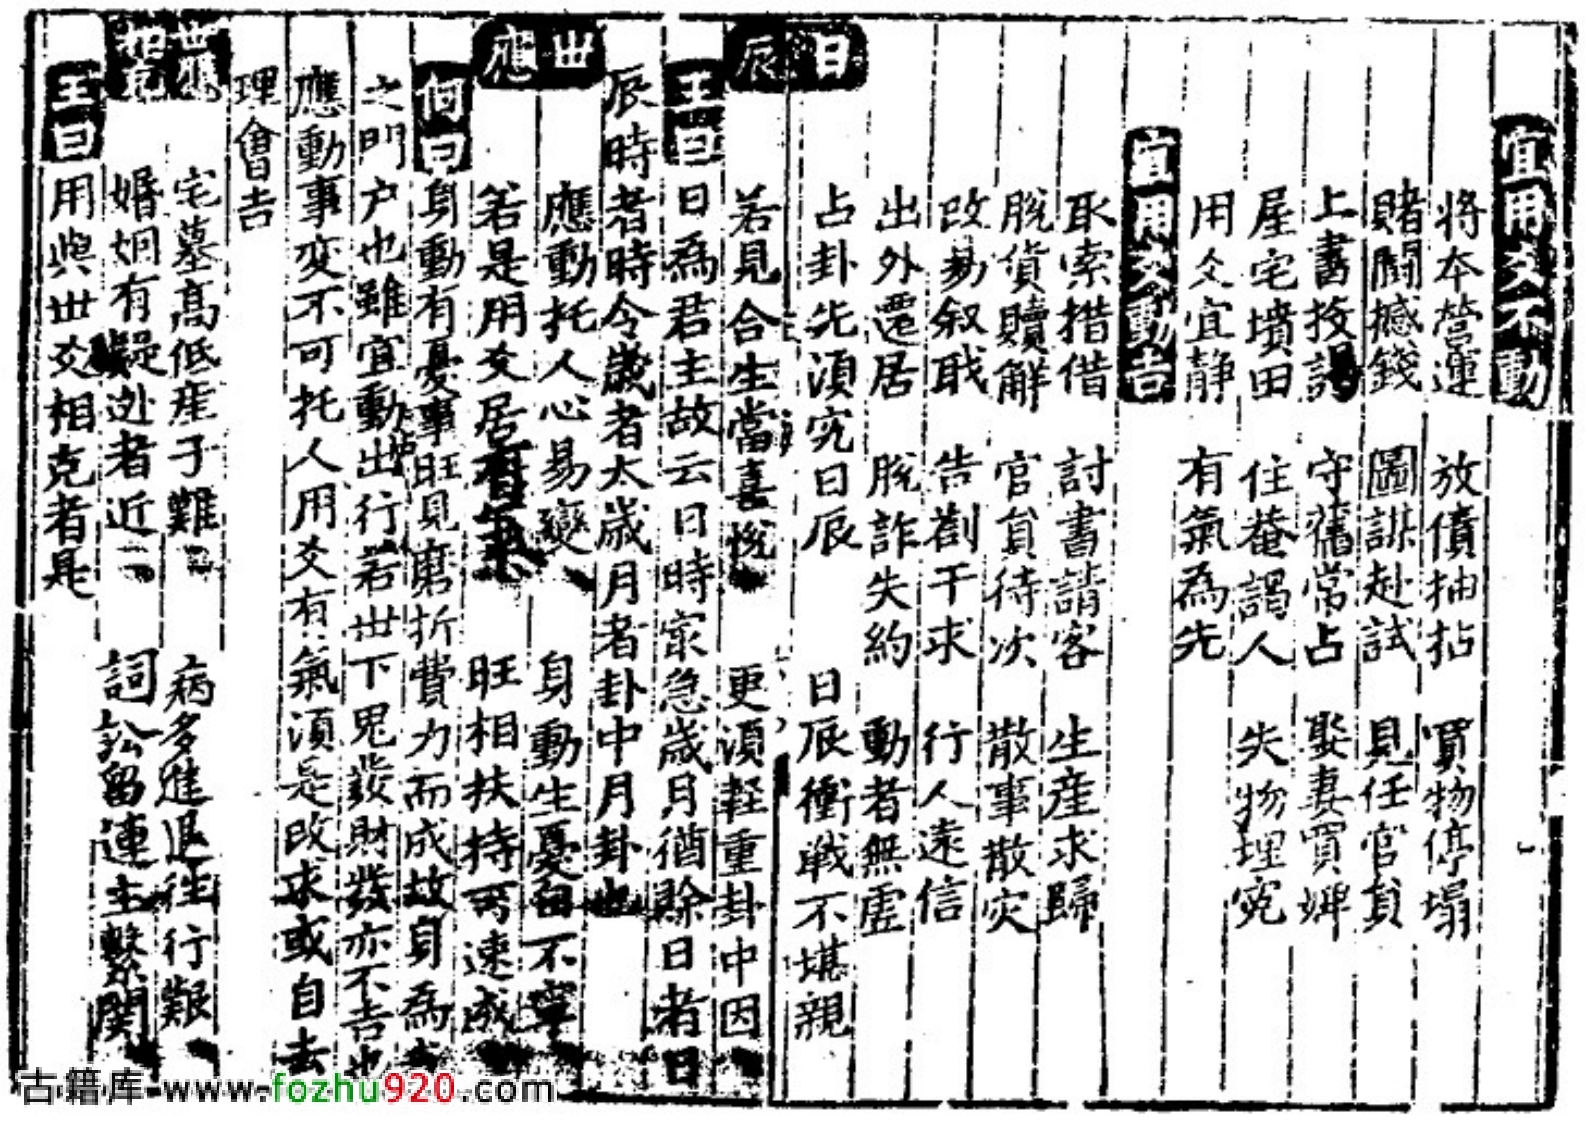 宜用爻不動
將本營運　放債抽拈　買物停塌
賭鬪撼錢　圖謀赴試　見任官員
上書投　守舊常占　娶妻買婢
屋宅墳田　住菴謁人　失物理冤
用爻宜静　有氣為先
宜用爻動吉
取索措借　討書請客　生産求歸
脫貨贖解　官員待次　散事散灾
改易叙戝　告劄干求　行人遠信
出外遷居　脫詐失約　動者無虛
占卦先湏究日辰　日辰衝戰不堪親
日辰
若見合生當喜悅　更湏軽重卦中因
王曰日為君主故云日時㝡急歲月猶餘日者日
辰時者時令歲者太歲月者卦中月卦也
世應
應動托人心易變　身動生憂自不寧
若是用爻居有氣　旺相扶持可速成
何曰身動有憂事旺見磨折費力而成故身為
之門户也雖宜動出行若世下鬼發財發亦不吉也
應動事变不可托人用爻有氣湏是改求或自去
理會吉
世應相克
宅墓高低産子難　病多進退往行艱
婚姻有疑迯者近　詞訟留連主繫関
王曰用與世爻相克者是
古籍库 www.fozhu920.com